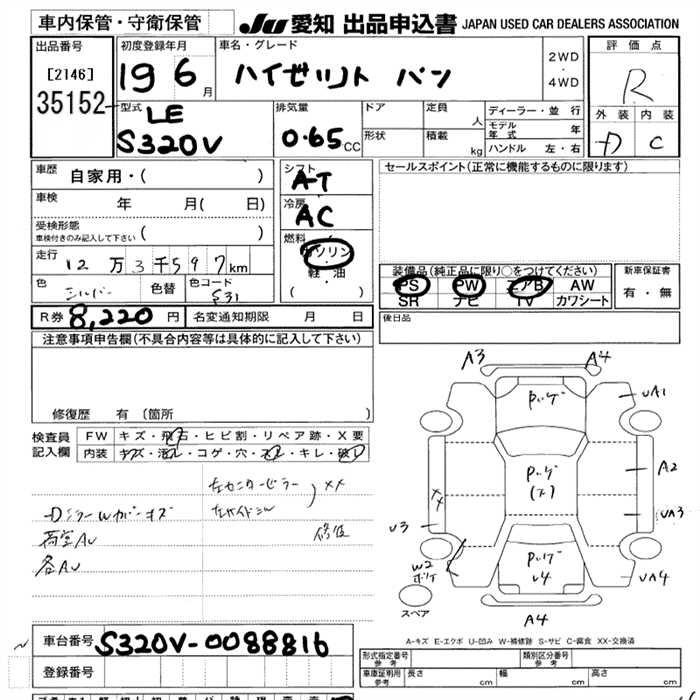 車内保管・守衛保管
JU 愛知 出品申込書 JAPAN USED CAR DEALERS ASSOCIATION
出品番号
[2146]
35152
初度登録年月
19 6 月
車名・グレード
ハイゼット バン
2WD
・
4WD
評価点
R
外装 内装
D C
型式
LE
S320V
排気量
0.65 CC
ドア
形状
定員 人
積載 kg
ディーラー・並 行
モデル年式 年
ハンドル 左・右
車歴 自家用・( )
車検 年 月( 日)
受検形態
車検付きのみ記入して下さい ( )
走行 12万3千597km
色 シルバー 色替 色コード S31
シフト
A-T
冷房
AC
燃料
ガソリン
軽・油
( )
セールスポイント(正常に機能するものに限ります)
装備品(純正品に限り○をつけてください)
PS PW エアB AW
SR ナビ TV カワシート
新車保証書
有・無
R券 8,220 円 名変通知期限 月 日
後日品
注意事項申告欄(不具合内容等は具体的に記入して下さい)
修復歴 有 (箇所
検査員
記入欄
FW キズ・飛石・ヒビ割・リペア跡・X要
内装 キズ・汚レ・コゲ・穴・スレ・キレ・破レ
XX
修復
各AU
A3 A4
UA1
A2
UA3
UA4
U3
XX
W2
ボケ
U4
A4
スペア
A-キズ E-エクボ U-凹み W-補修跡 S-サビ C-腐食 XX-交換済
車台番号 S320V-0088816
登録番号
形式指定番号
参考
類別区分番号
参考
車庫証明用
参考
長さ cm 幅 cm 高さ cm